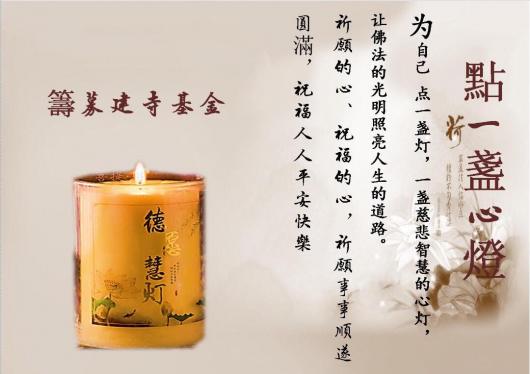 點一盞心燈
荷
为自己 点一盏灯，一盏慈悲智慧的心灯，
让佛法的光明照亮人生的道路。
祈愿的心、祝福的心，祈愿事事顺遂
圓滿，祝福人人平安快樂
籌募建寺基金
德愿
慧灯